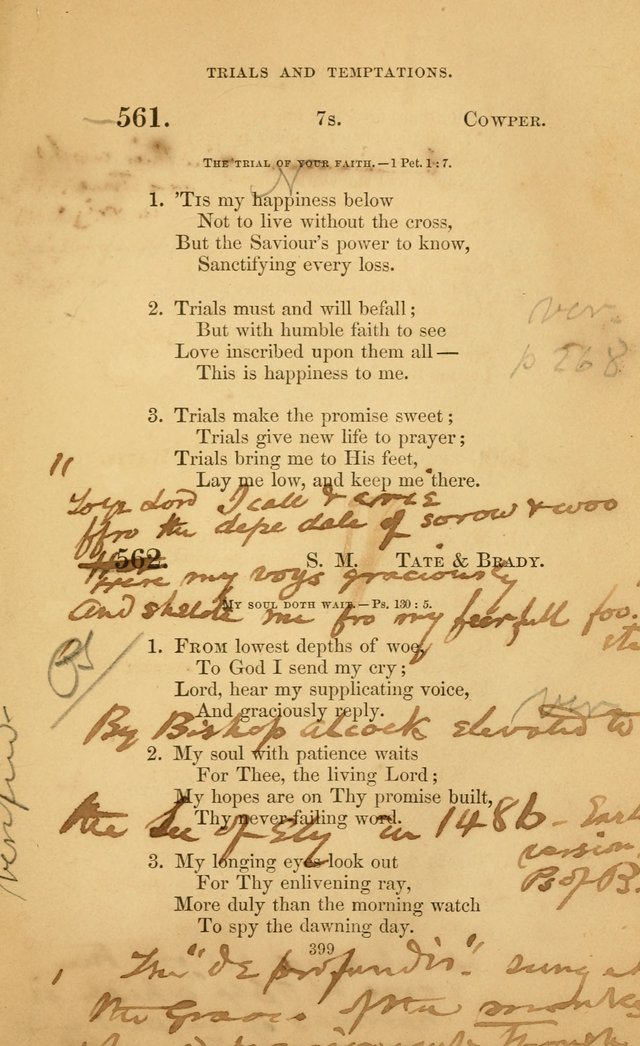 TRIALS AND TEMPTATIONS.
561. 7s. COWPER.
THE TRIAL OF YOUR FAITH.—1 Pet. 1:7.
1. 'TIS my happiness below
Not to live without the cross,
But the Saviour's power to know,
Sanctifying every loss.
2. Trials must and will befall;
But with humble faith to see
Love inscribed upon them all—
This is happiness to me.
ver.
p 268
3. Trials make the promise sweet;
Trials give new life to prayer;
Trials bring me to His feet,
Lay me low, and keep me there.
"
Lord I call &
ffro the depe dale of sorow & woo
562. S. M. TATE & BRADY.
my voys graciously
MY SOUL DOTH WAIT.—Ps. 130:5.
And shelde me fro my feerfull foo.
1. FROM lowest depths of woe,
To God I send my cry;
Lord, hear my supplicating voice,
And graciously reply.
By Bishop Alcock elevated to
2. My soul with patience waits
For Thee, the living Lord;
My hopes are on Thy promise built,
Thy never-failing word.
the See of Ely in 1486 - Earl
version
Ps of B.
3. My longing eyes look out
For Thy enlivening ray,
More duly than the morning watch
To spy the dawning day.
399
The "de profundis" sung at
the Graves of the monks
through